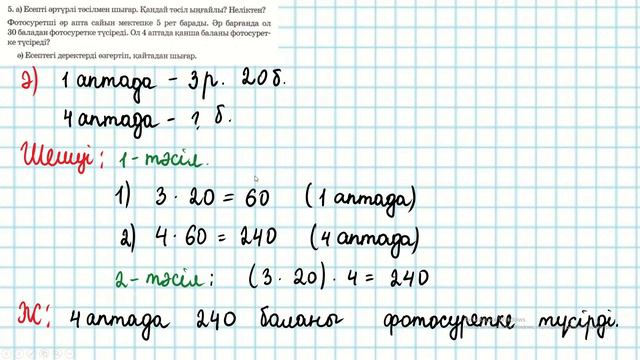 5. а) Есепті әртүрлі тәсілмен шығар. Қандай тәсіл ыңғайлы? Неліктен?
Фотосуретші әр апта сайын мектепке 5 рет барады. Әр барғанда ол
30 баладан фотосуретке түсіреді. Ол 4 аптада қанша баланы фотосурет-
ке түсіреді?
ә) Есептегі деректерді өзгертіп, қайтадан шығар.
Ә) 1 аптада - 3 р. 20 б.
4 аптада - ? б.
Шешуі: 1-тәсіл.
1) 3 · 20 = 60 (1 аптада)
2) 4 · 60 = 240 (4 аптада)
2-тәсіл: (3 · 20) · 4 = 240
Ж: 4 аптада 240 баланы фотосуретке түсірді.